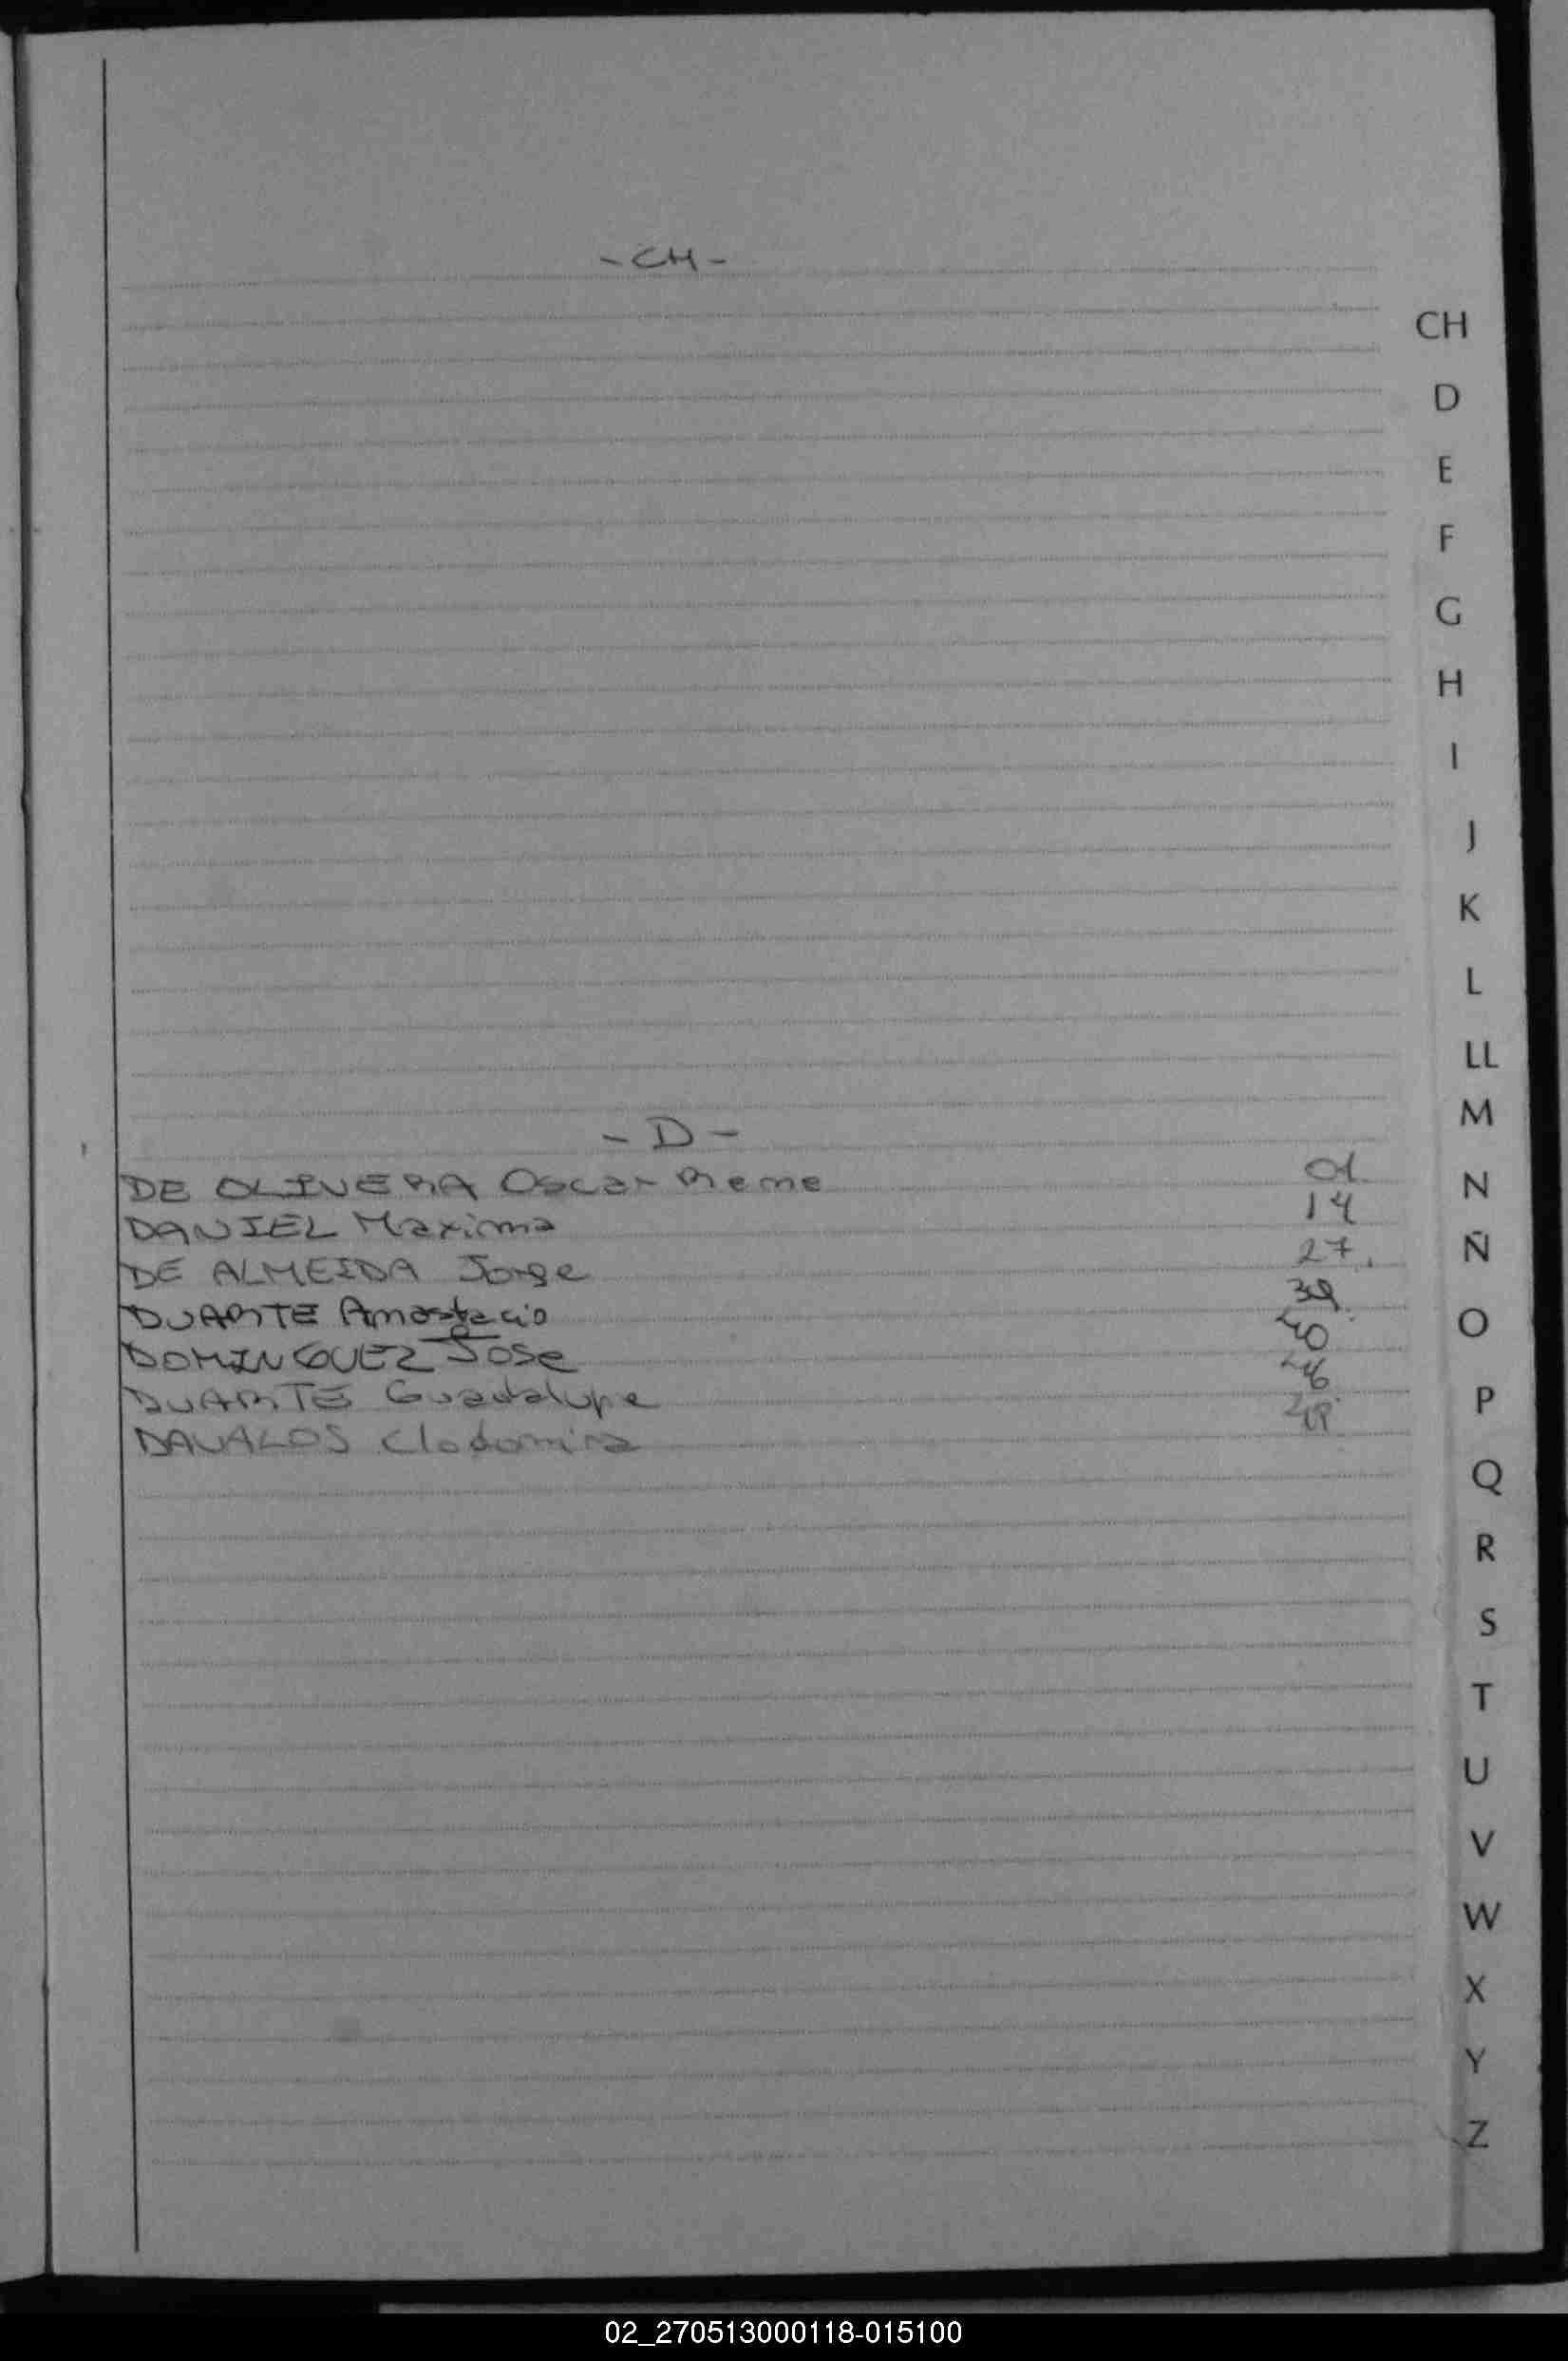 - CH -
- D -
DE OLIVERA Oscar Reme 01
DANIEL Maxima 14
DE ALMEIDA Jorge 27.
DUARTE Anastacio 39
DOMINGUEZ Jose 40
DUARTE Guadalupe 46
DAVALOS Clodomira 48
CH
D
E
F
G
H
I
J
K
L
LL
M
N
Ñ
O
P
Q
R
S
T
U
V
W
X
Y
Z
02_270513000118-015100